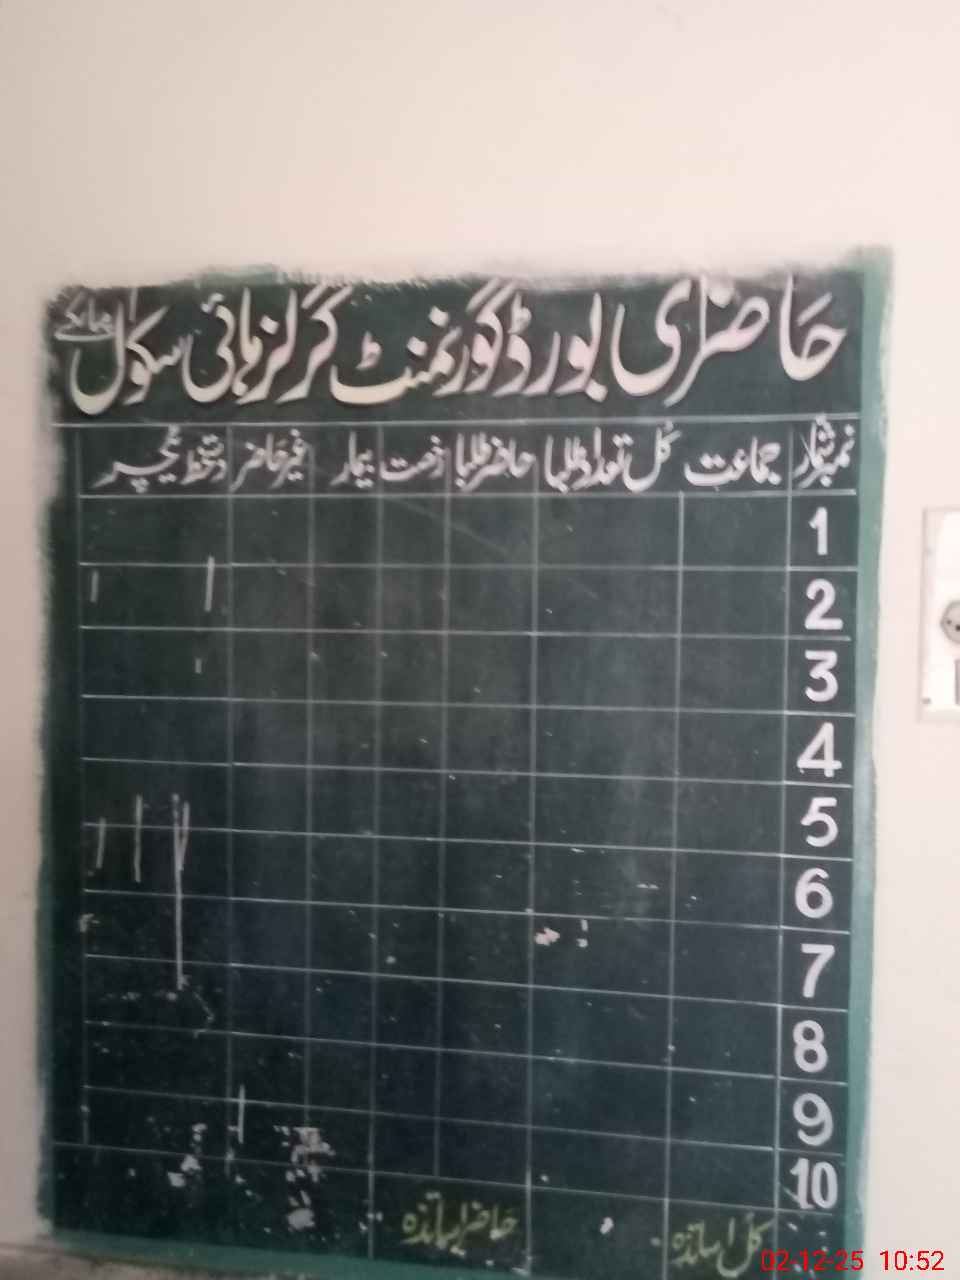 حاضری بورڈ گورنمنٹ گرلز ہائی سکول
نمبر شمار جماعت کل تعداد طلبا حاضر طلبا رخصت بیمار غیر حاضر دستخط ٹیچر
1
2
3
4
5
6
7
8
9
10
کل اساتذہ حاضر اساتذہ
02-12-25 10:52